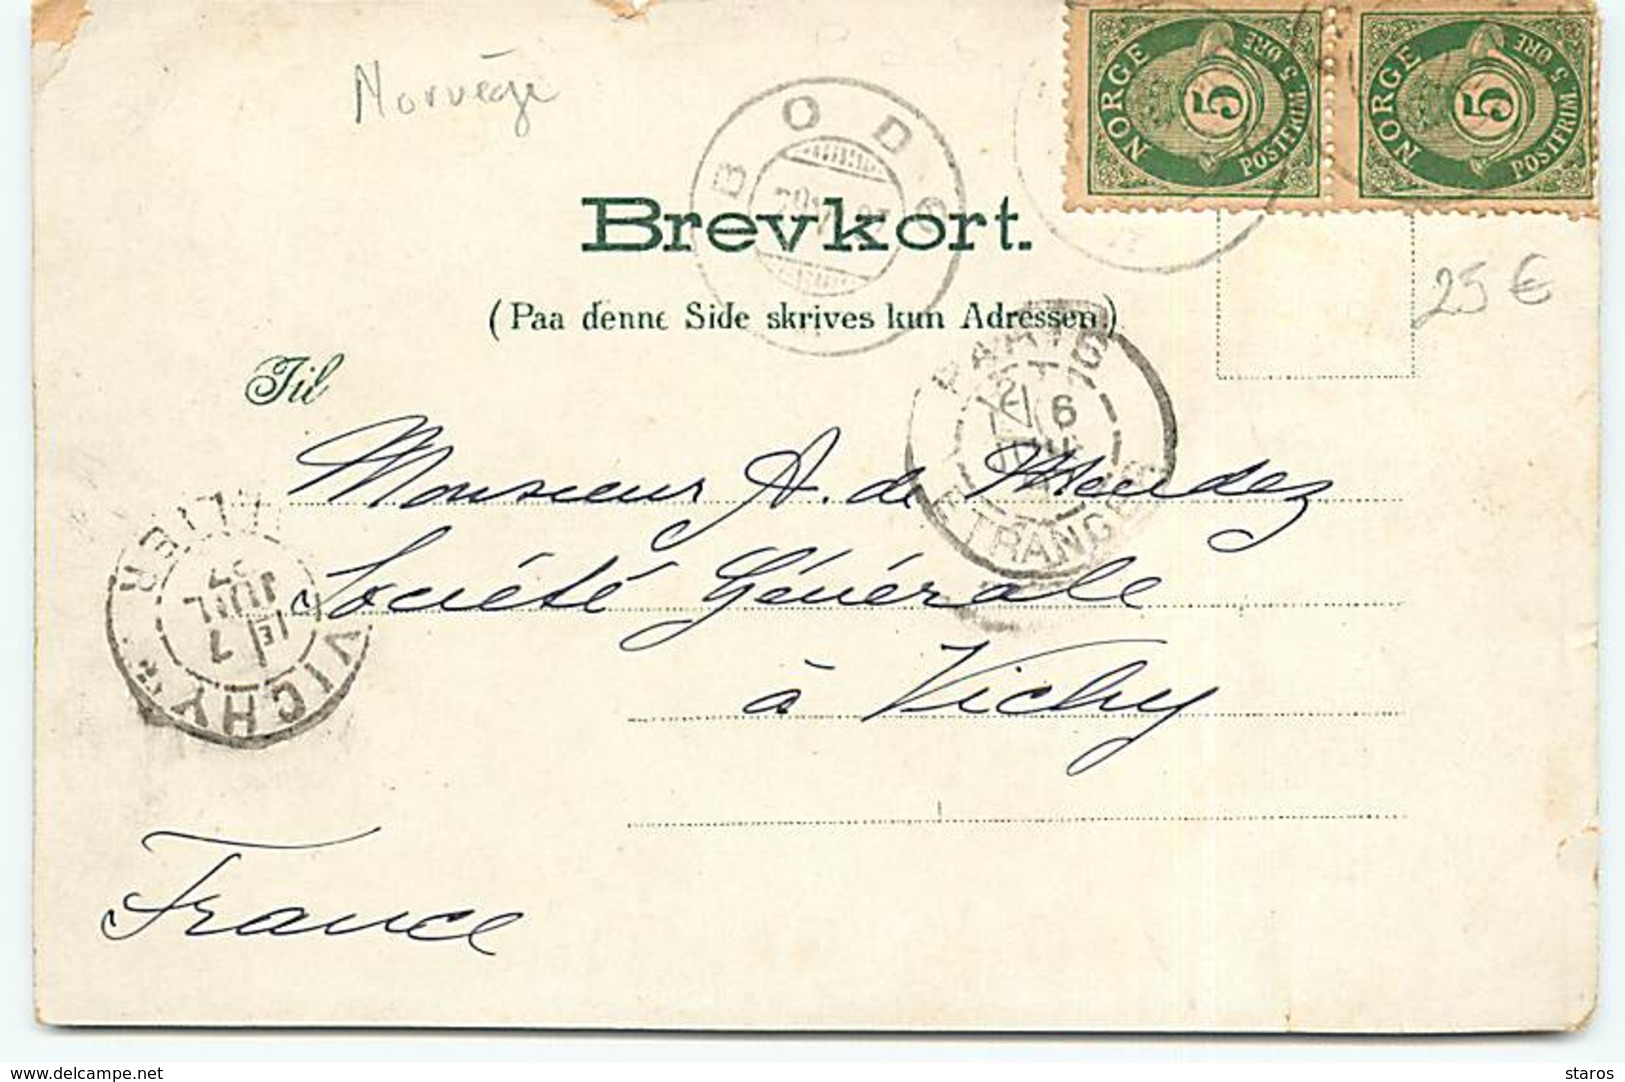 Norvège
NORGE 5 POSTFRIM 5 ØRE
NORGE 5 POSTFRIM 5 ØRE
BODØ
Brevkort.
(Paa denne Side skrives kun Adressen.)
25 €
Til
PARIS
6
ETRANGER
Monsieur A. de Mendez
Société Générale
à Vichy
France
VICHY
ALLIER
7
JUIL
delcampe.net
staros